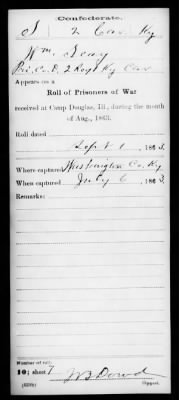 Confederate.
S 2 Cav Ky
Wm.
Pri, Co. D, 2 Regt Ky Cav
Appears on a
Roll of Prisoners of War
received at Camp Douglas, Ill., during the month
of Aug., 1863.
Roll dated
Sept 1, 1863.
Where captured Washington Co, Ky
When captured July 6, 1863
Remarks:
Number of roll:
10; sheet 7
Copyist.